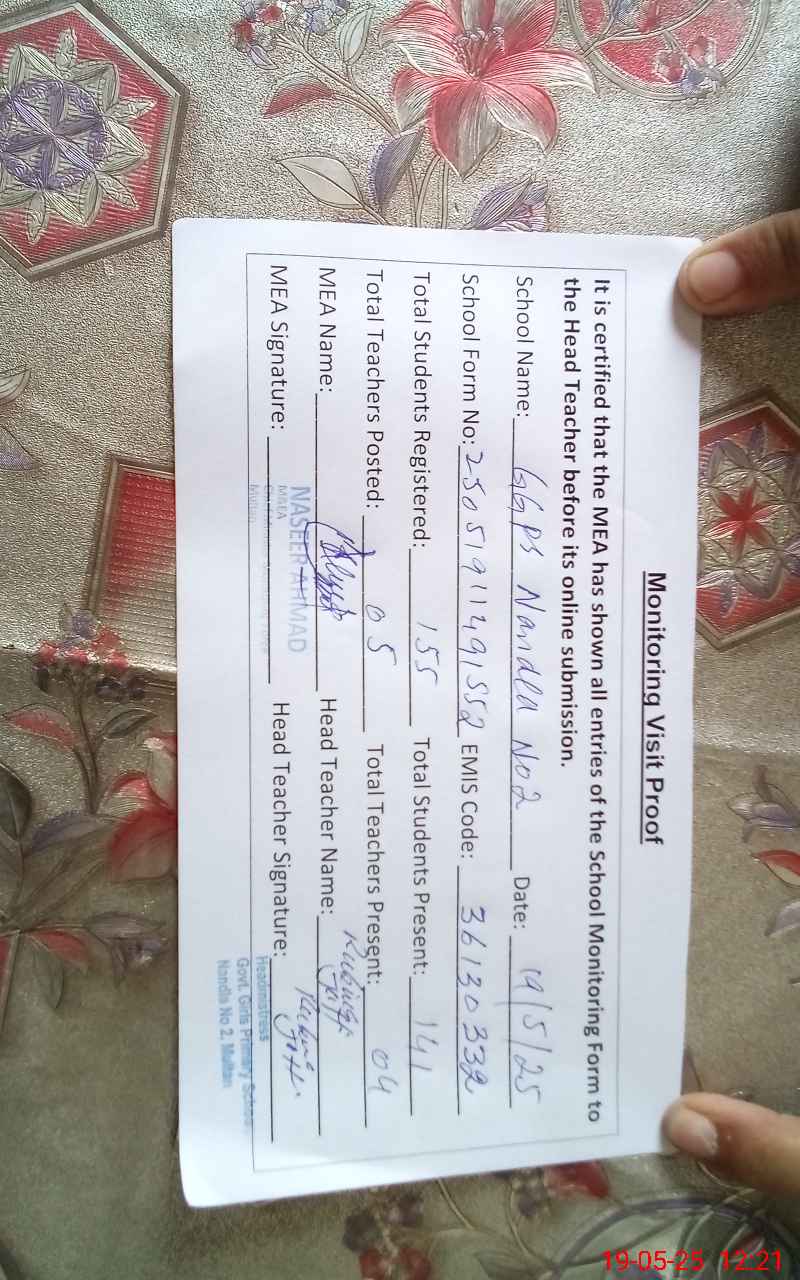 Monitoring Visit Proof
It is certified that the MEA has shown all entries of the School Monitoring Form to
the Head Teacher before its online submission.
School Name: GGPS Nandla No2 Date: 19/5/25
School Form No: 25051911491552 EMIS Code: 36130332
Total Students Registered: 155 Total Students Present: 141
Total Teachers Posted: 05 Total Teachers Present: 04
MEA Name: Head Teacher Name: Rubina
MEA Signature: NASEER AHMAD Head Teacher Signature: Rubina
MMEA
Multan
Headmistress
Govt. Girls Primary School
Nandla No 2. Multan
19-05-25 12:21